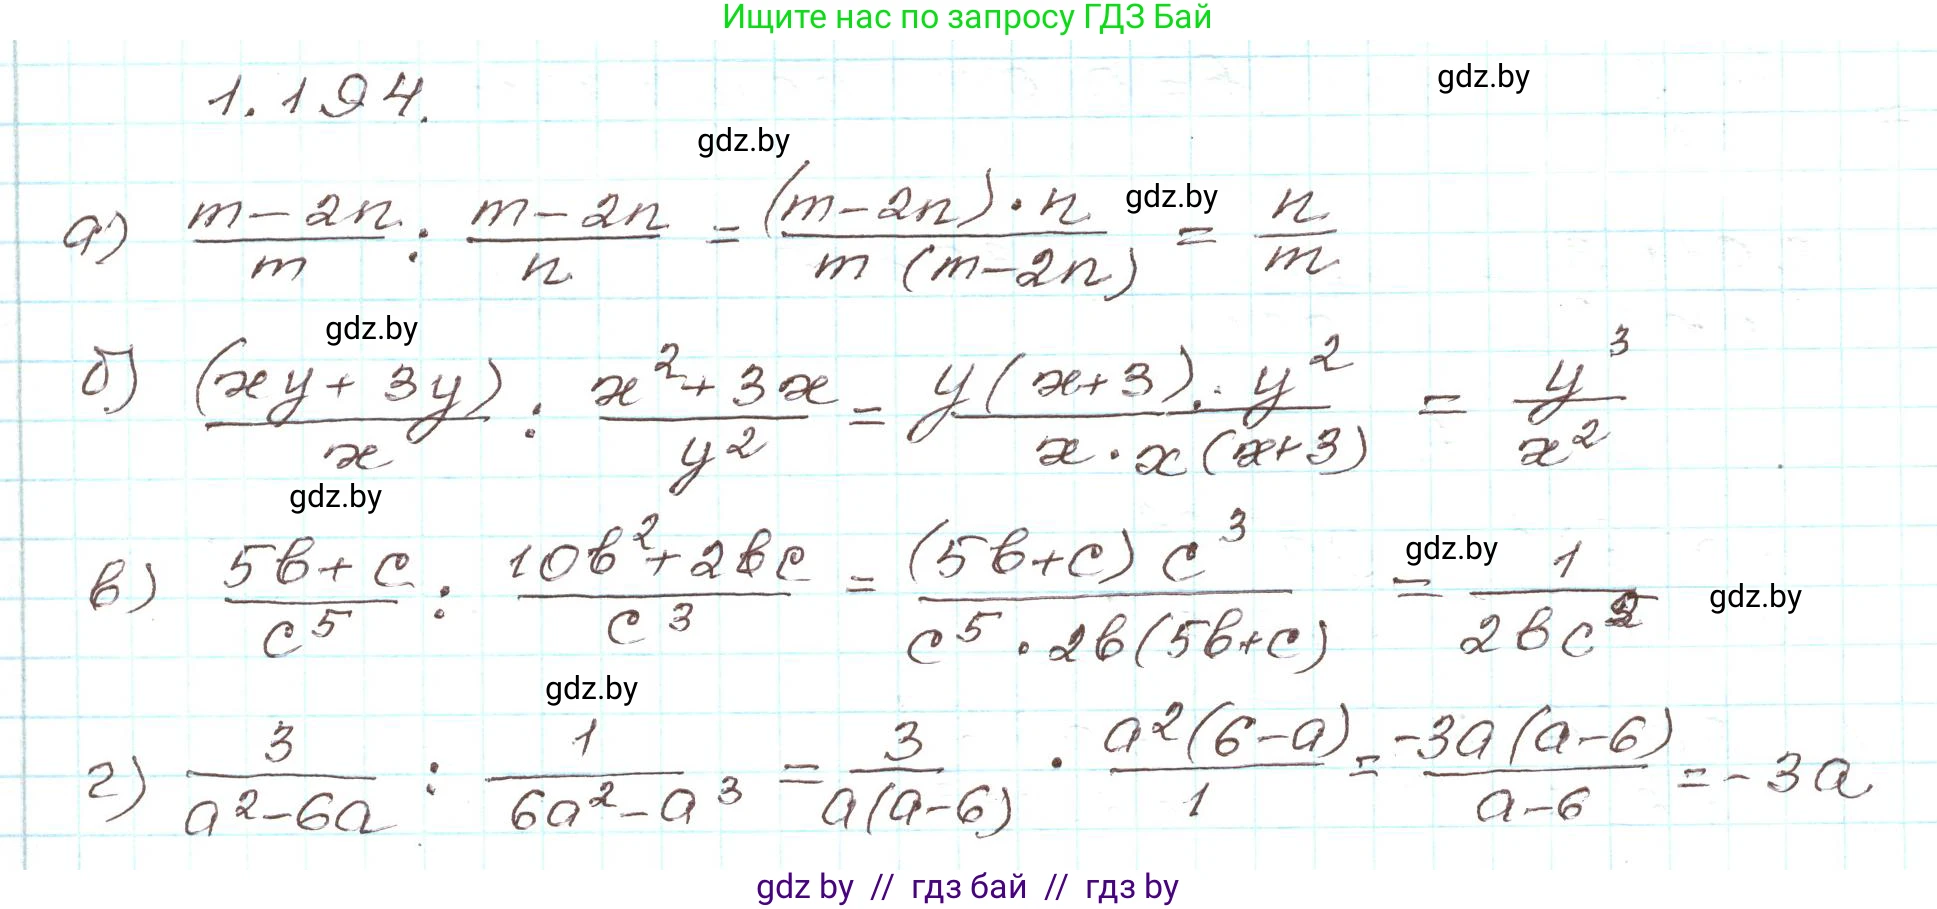 Ищите нас по запросу ГДЗ Бай
gdz.by
1.194.
gdz.by
gdz.by
а) (m-2n)/m : (m-2n)/n = ((m-2n)·n)/(m(m-2n)) = n/m
gdz.by
б) (xy+3y)/x : (x²+3x)/y² = (y(x+3)·y²)/(x·x(x+3)) = y³/x²
gdz.by
в) (5b+c)/c⁵ : (10b²+2bc)/c³ = ((5b+c)c³)/(c⁵·2b(5b+c)) = 1/(2bc²)
gdz.by
gdz.by
gdz.by
г) 3/(a²-6a) : 1/(6a²-a³) = 3/(a(a-6)) · (a²(6-a))/1 = (-3a(a-6))/(a-6) = -3a
gdz by // гдз бай // гдз by